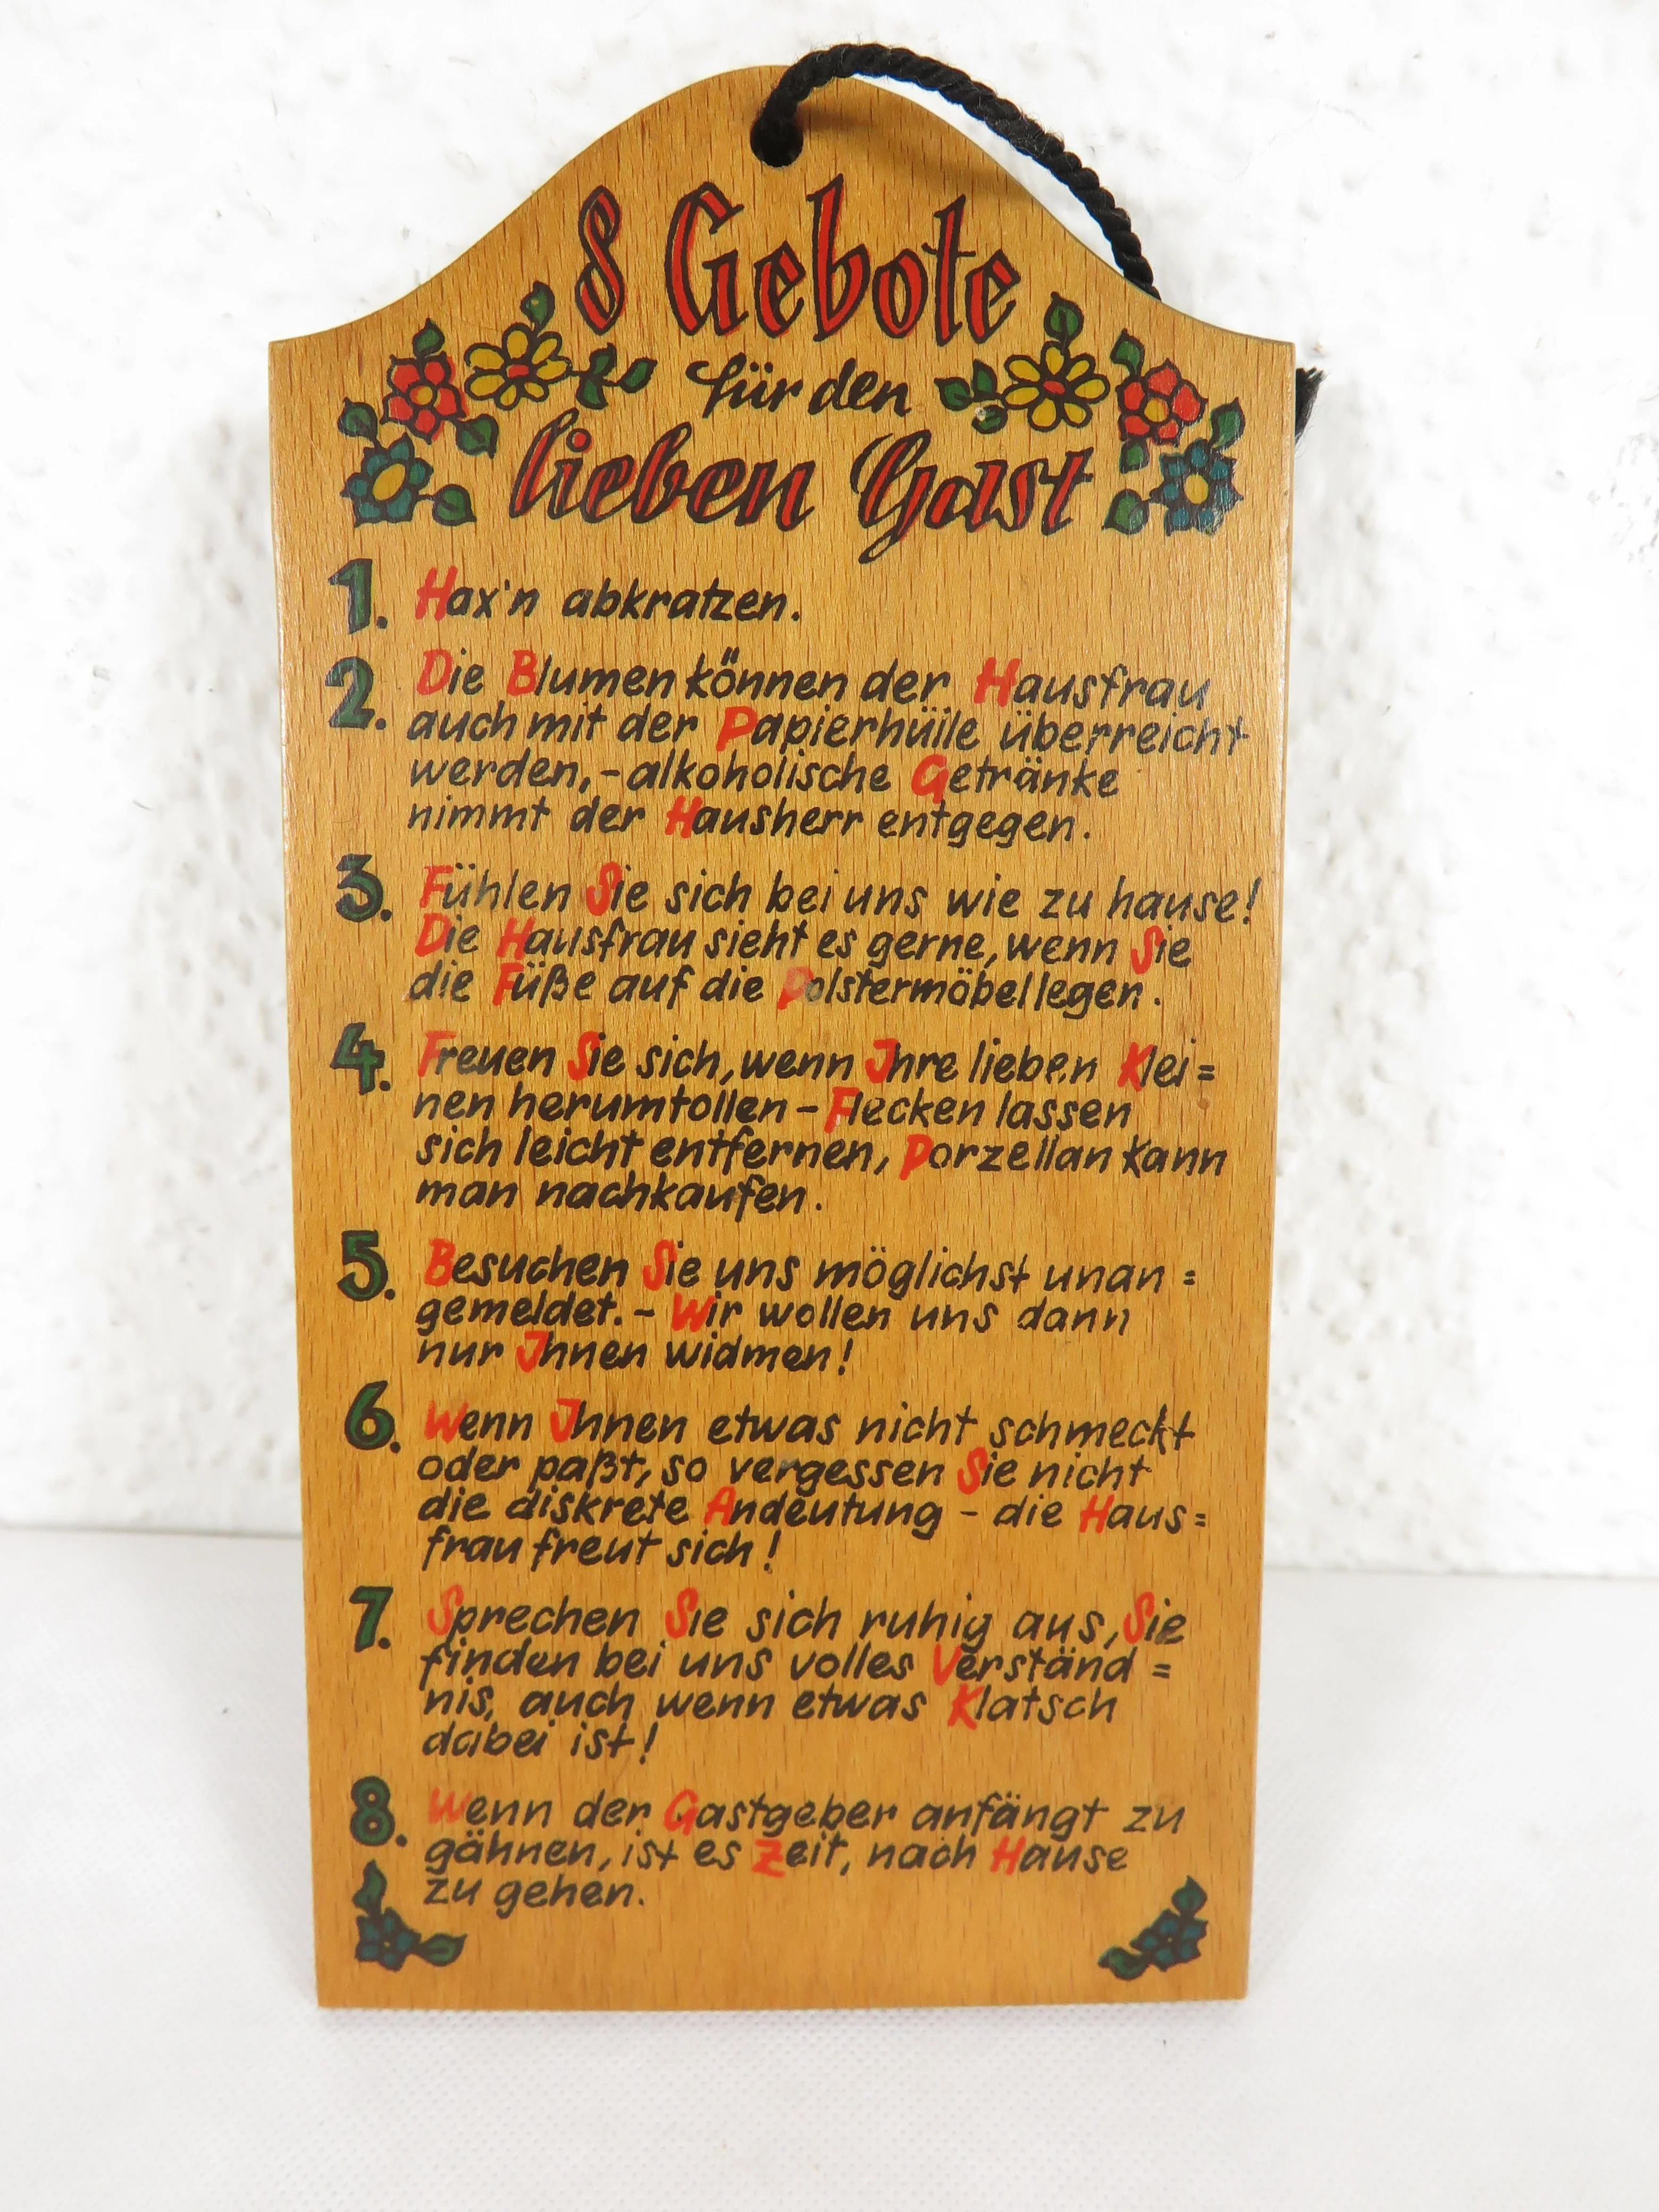 8 Gebote
für den
lieben Gast
1. Hax'n abkratzen.
2. Die Blumen können der Hausfrau
auch mit der Papierhülle überreicht
werden,- alkoholische Getränke
nimmt der Hausherr entgegen.
3. Fühlen Sie sich bei uns wie zu hause!
Die Hausfrau sieht es gerne, wenn Sie
die Füße auf die Polstermöbel legen.
4. Freuen Sie sich, wenn Jhre lieben Klei=
nen herumtollen - Flecken lassen
sich leicht entfernen, Porzellan kann
man nachkaufen.
5. Besuchen Sie uns möglichst unan=
gemeldet. - Wir wollen uns dann
nur Jhnen widmen!
6. Wenn Jhnen etwas nicht schmeckt
oder paßt, so vergessen Sie nicht
die diskrete Andeutung - die Haus=
frau freut sich!
7. Sprechen Sie sich ruhig aus, Sie
finden bei uns volles Verständ=
nis, auch wenn etwas Klatsch
dabei ist!
8. Wenn der Gastgeber anfängt zu
gähnen, ist es Zeit, nach Hause
zu gehen.